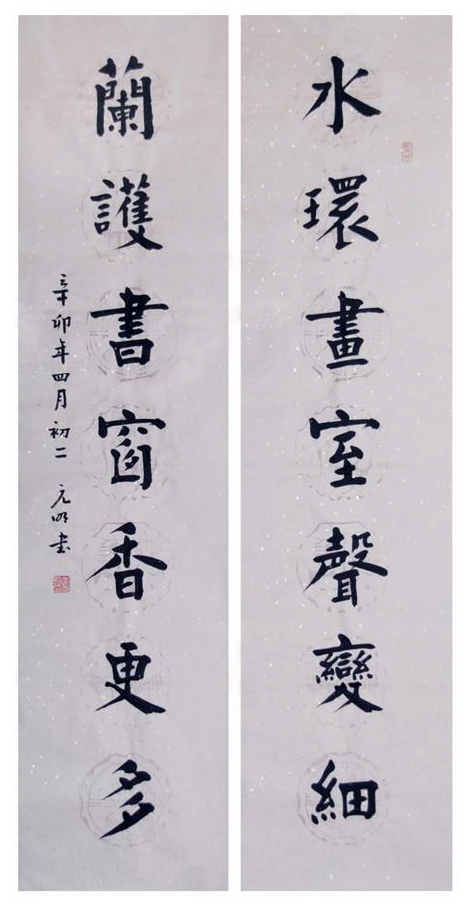 水環畫室聲變細
蘭護書窗香更多
辛卯年四月初二 元明書